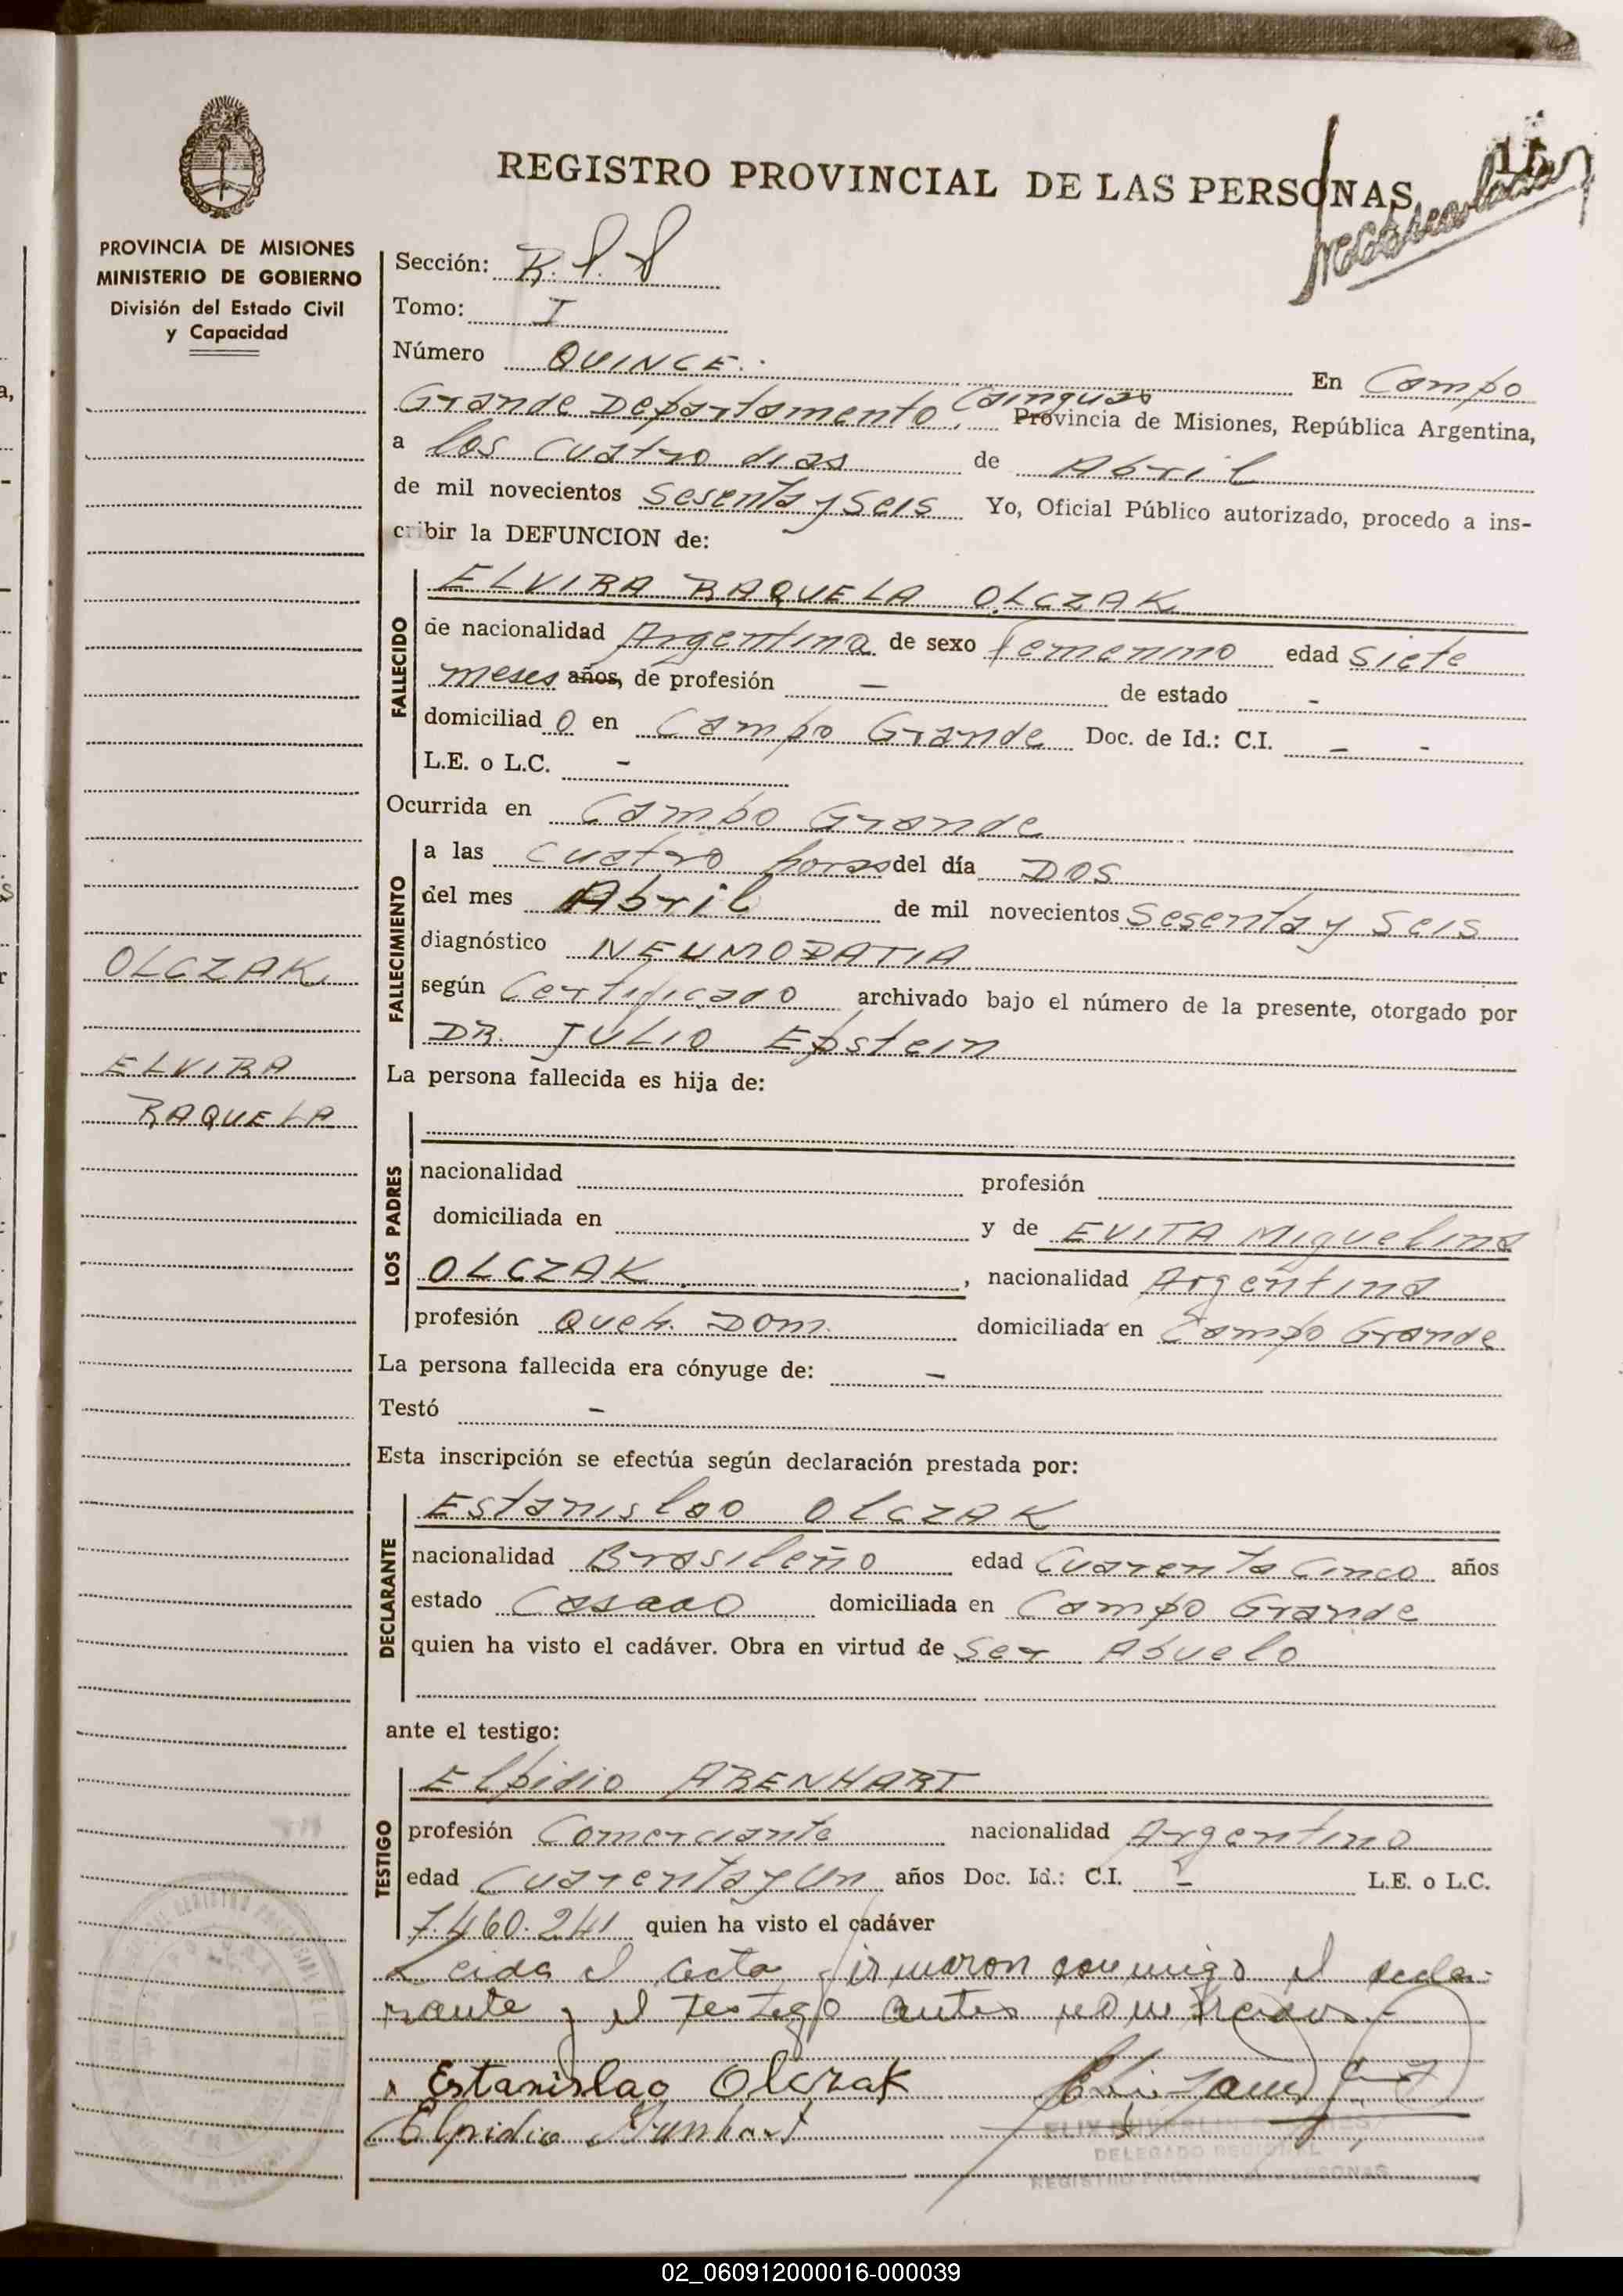 REGISTRO PROVINCIAL DE LAS PERSONAS
15
PROVINCIA DE MISIONES
MINISTERIO DE GOBIERNO
División del Estado Civil
y Capacidad
Sección:
Tomo: I
Número QUINCE. En Campo
Grande Departamento Cainguas Provincia de Misiones, República Argentina,
a los cuatro dias de Abril
de mil novecientos Sesenta y Seis Yo, Oficial Público autorizado, procedo a ins-
cribir la DEFUNCION de:
FALLECIDO
ELVIRA RAQUELA OLCZAK
de nacionalidad Argentina de sexo femenino edad Siete
meses años, de profesión — de estado -
domiciliad o en Campo Grande Doc. de Id.: C.I. — -
L.E. o L.C. -
Ocurrida en Campo Grande
FALLECIMIENTO
a las cuatro horas del día DOS
del mes Abril de mil novecientos Sesenta y Seis
diagnóstico NEUMOPATIA
según Certificado archivado bajo el número de la presente, otorgado por
DR. JULIO Epstein
OLCZAK
ELVIRA
RAQUELA
La persona fallecida es hija de:
LOS PADRES
nacionalidad profesión
domiciliada en y de EVITA Miguelina
OLCZAK , nacionalidad Argentina
profesión Queh. Dom. domiciliada en Campo Grande
La persona fallecida era cónyuge de: -
Testó -
Esta inscripción se efectúa según declaración prestada por:
DECLARANTE
Estanislao OLCZAK
nacionalidad Brasileño edad Cuarenta Cinco años
estado Casado domiciliada en Campo Grande
quien ha visto el cadáver. Obra en virtud de Ser Abuelo
ante el testigo:
TESTIGO
Elpidio ARENHART
profesión Comerciante nacionalidad Argentino
edad Cuarenta y Un años Doc. Id.: C.I. - L.E. o L.C.
7.460.241 quien ha visto el cadáver
Leida el acta, firmaron conmigo el decla-
rante y el testigo antes nombrados.-
Estanislao Olczak
Elpidio Arenhart
DELEGADO REGIONAL
REGISTRO PROVINCIAL PERSONAS
02_060912000016-000039